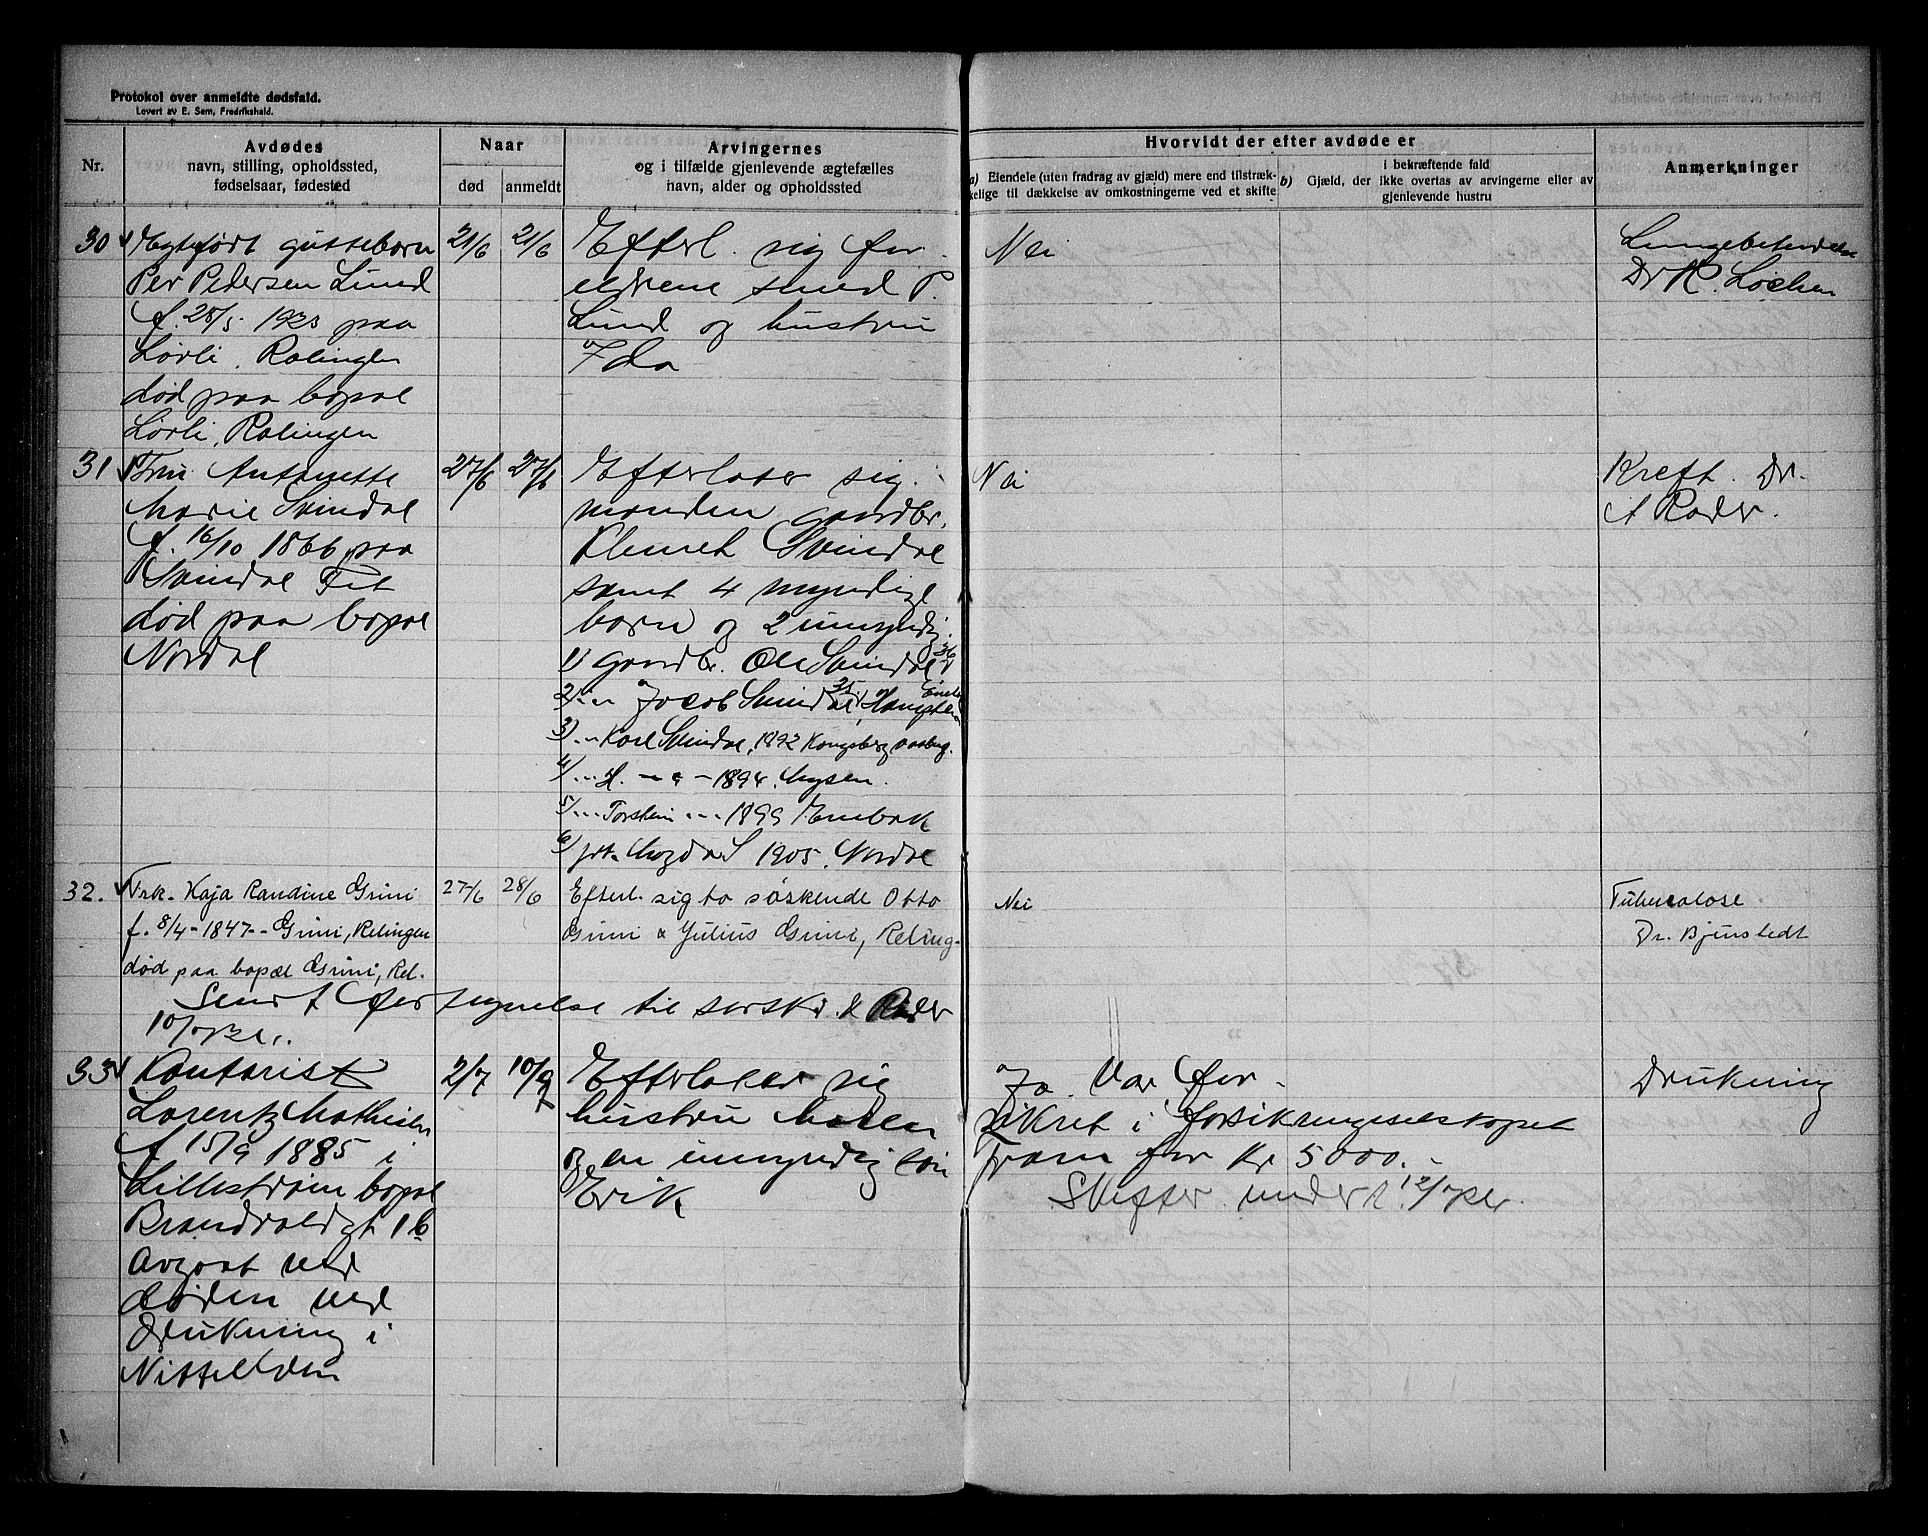 Protokol over anmeldte dødsfald.
Levert av E. Sem, Fredrikshald.
Nr.
Avdødes
navn, stilling, opholdssted,
fødselsaar, fødested
Naar
død anmeldt
Arvingernes
og i tilfælde gjenlevende ægtefælles
navn, alder og opholdssted
Hvorvidt der efter avdøde er
a) Eiendele (uten fradrag av gjæld) mere end tilstræk-
kelige til dækkelse av omkostningerne ved et skifte
i bekræftende fald
b) Gjæld, der ikke overtas av arvingerne eller av
gjenlevende hustru
Anmerkninger
30 Egtefødt guttebarn
Per Pedersen Lund
f. 28/5 1923 paa
Lørli, Rælingen
død paa bopæl
Lørli, Rælingen
21/6 21/6
Efterl. sig for-
eldrene smed P.
Lund og hustru
Ida
Nei
Lungebetendelse
Dr K. Lochen
31 Fru Antonette
Marie Svindal
f. 16/10 1866 paa
Svindal Fet
død paa bopæl
Nordal
27/6 27/6
Efterlater sig
manden gaardbr.
Klemet Svindal
samt 4 myndige
barn og 2 umyndig.
1) Gaardbr. Ole Svindal 36
2) " Jacob Svindal 35,
3) " Karl Svindal, 1892 Kongsberg
4) " H. — " — 1894. Mysen.
5) " Torstein " 1899 Enebak
6) Magda S 1905. Nordal
Nei
Kreft. Dr.
A Rader.
32. Frk. Kaja Randine Grini
f. 8/4 - 1847 - Grini, Relingen
død paa bopæl Grini, Rel.
27/6 28/6
Efterl. sig to søskende Otto
Grini & Julius Grini, Reling-
Nei
Tuberculose
Dr. Bjenstedt
til
33 Kontorist
Lorentz Mathisen
f 15/9 1885 i
Lillestrøm bopæl
Brandvaldgt 16
Avgaat ved
døden ved
drukning i
Nittelven
2/7 10/7
Efterlater sig
hustru Maren
og en umyndig søn
Erik
Ja. Var for-
sikret i forsikringsselskapet
Fram for Kr 5000.-
Skifter under
Drukning